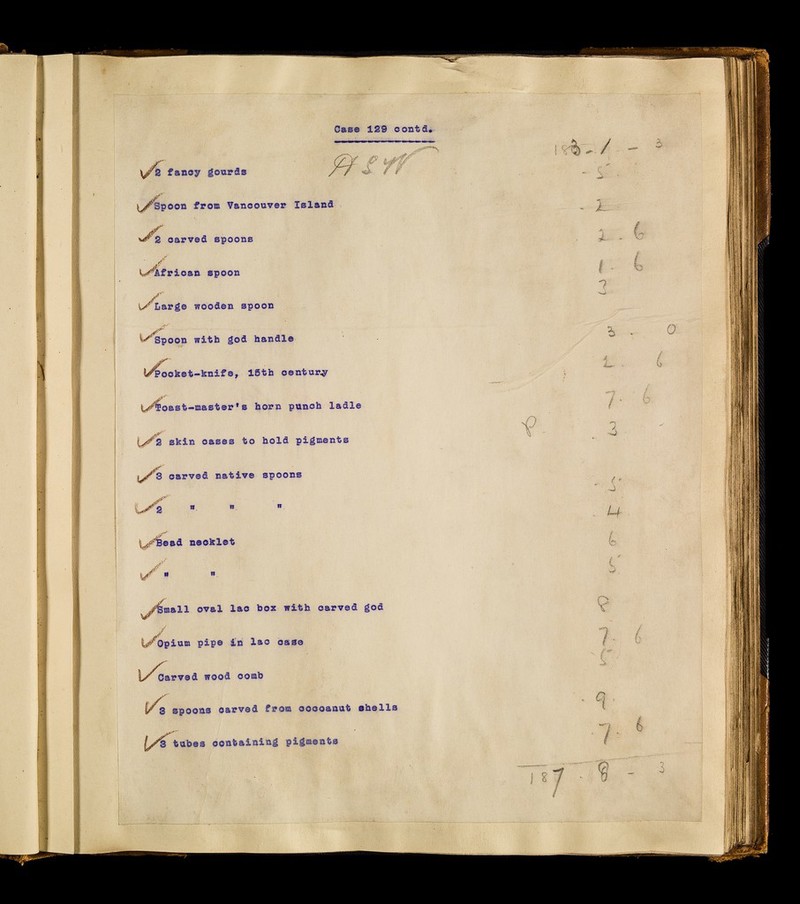 Case 129 contd.
HSW 183 - 1 - 3
2 fancy gourds - 5
Spoon from Vancouver Island - 2 -
2 carved spoons 2 . 6
African spoon 1 - 6
Large wooden spoon 3
Spoon with god handle 3 - 0
Pocket-knife, 15th century 2 . 6
Toast-master's horn punch ladle 7 - 6
2 skin cases to hold pigments P. . 3 -
3 carved native spoons - 5
2 " " " 4
Bead necklet 6
" " 5
Small oval lac box with carved god 8
Opium pipe in lac case 7 - 6
Carved wood comb 5
3 spoons carved from cocoanut shells - 9 -
3 tubes containing pigments - 7 - 6
187 - 8 - 3